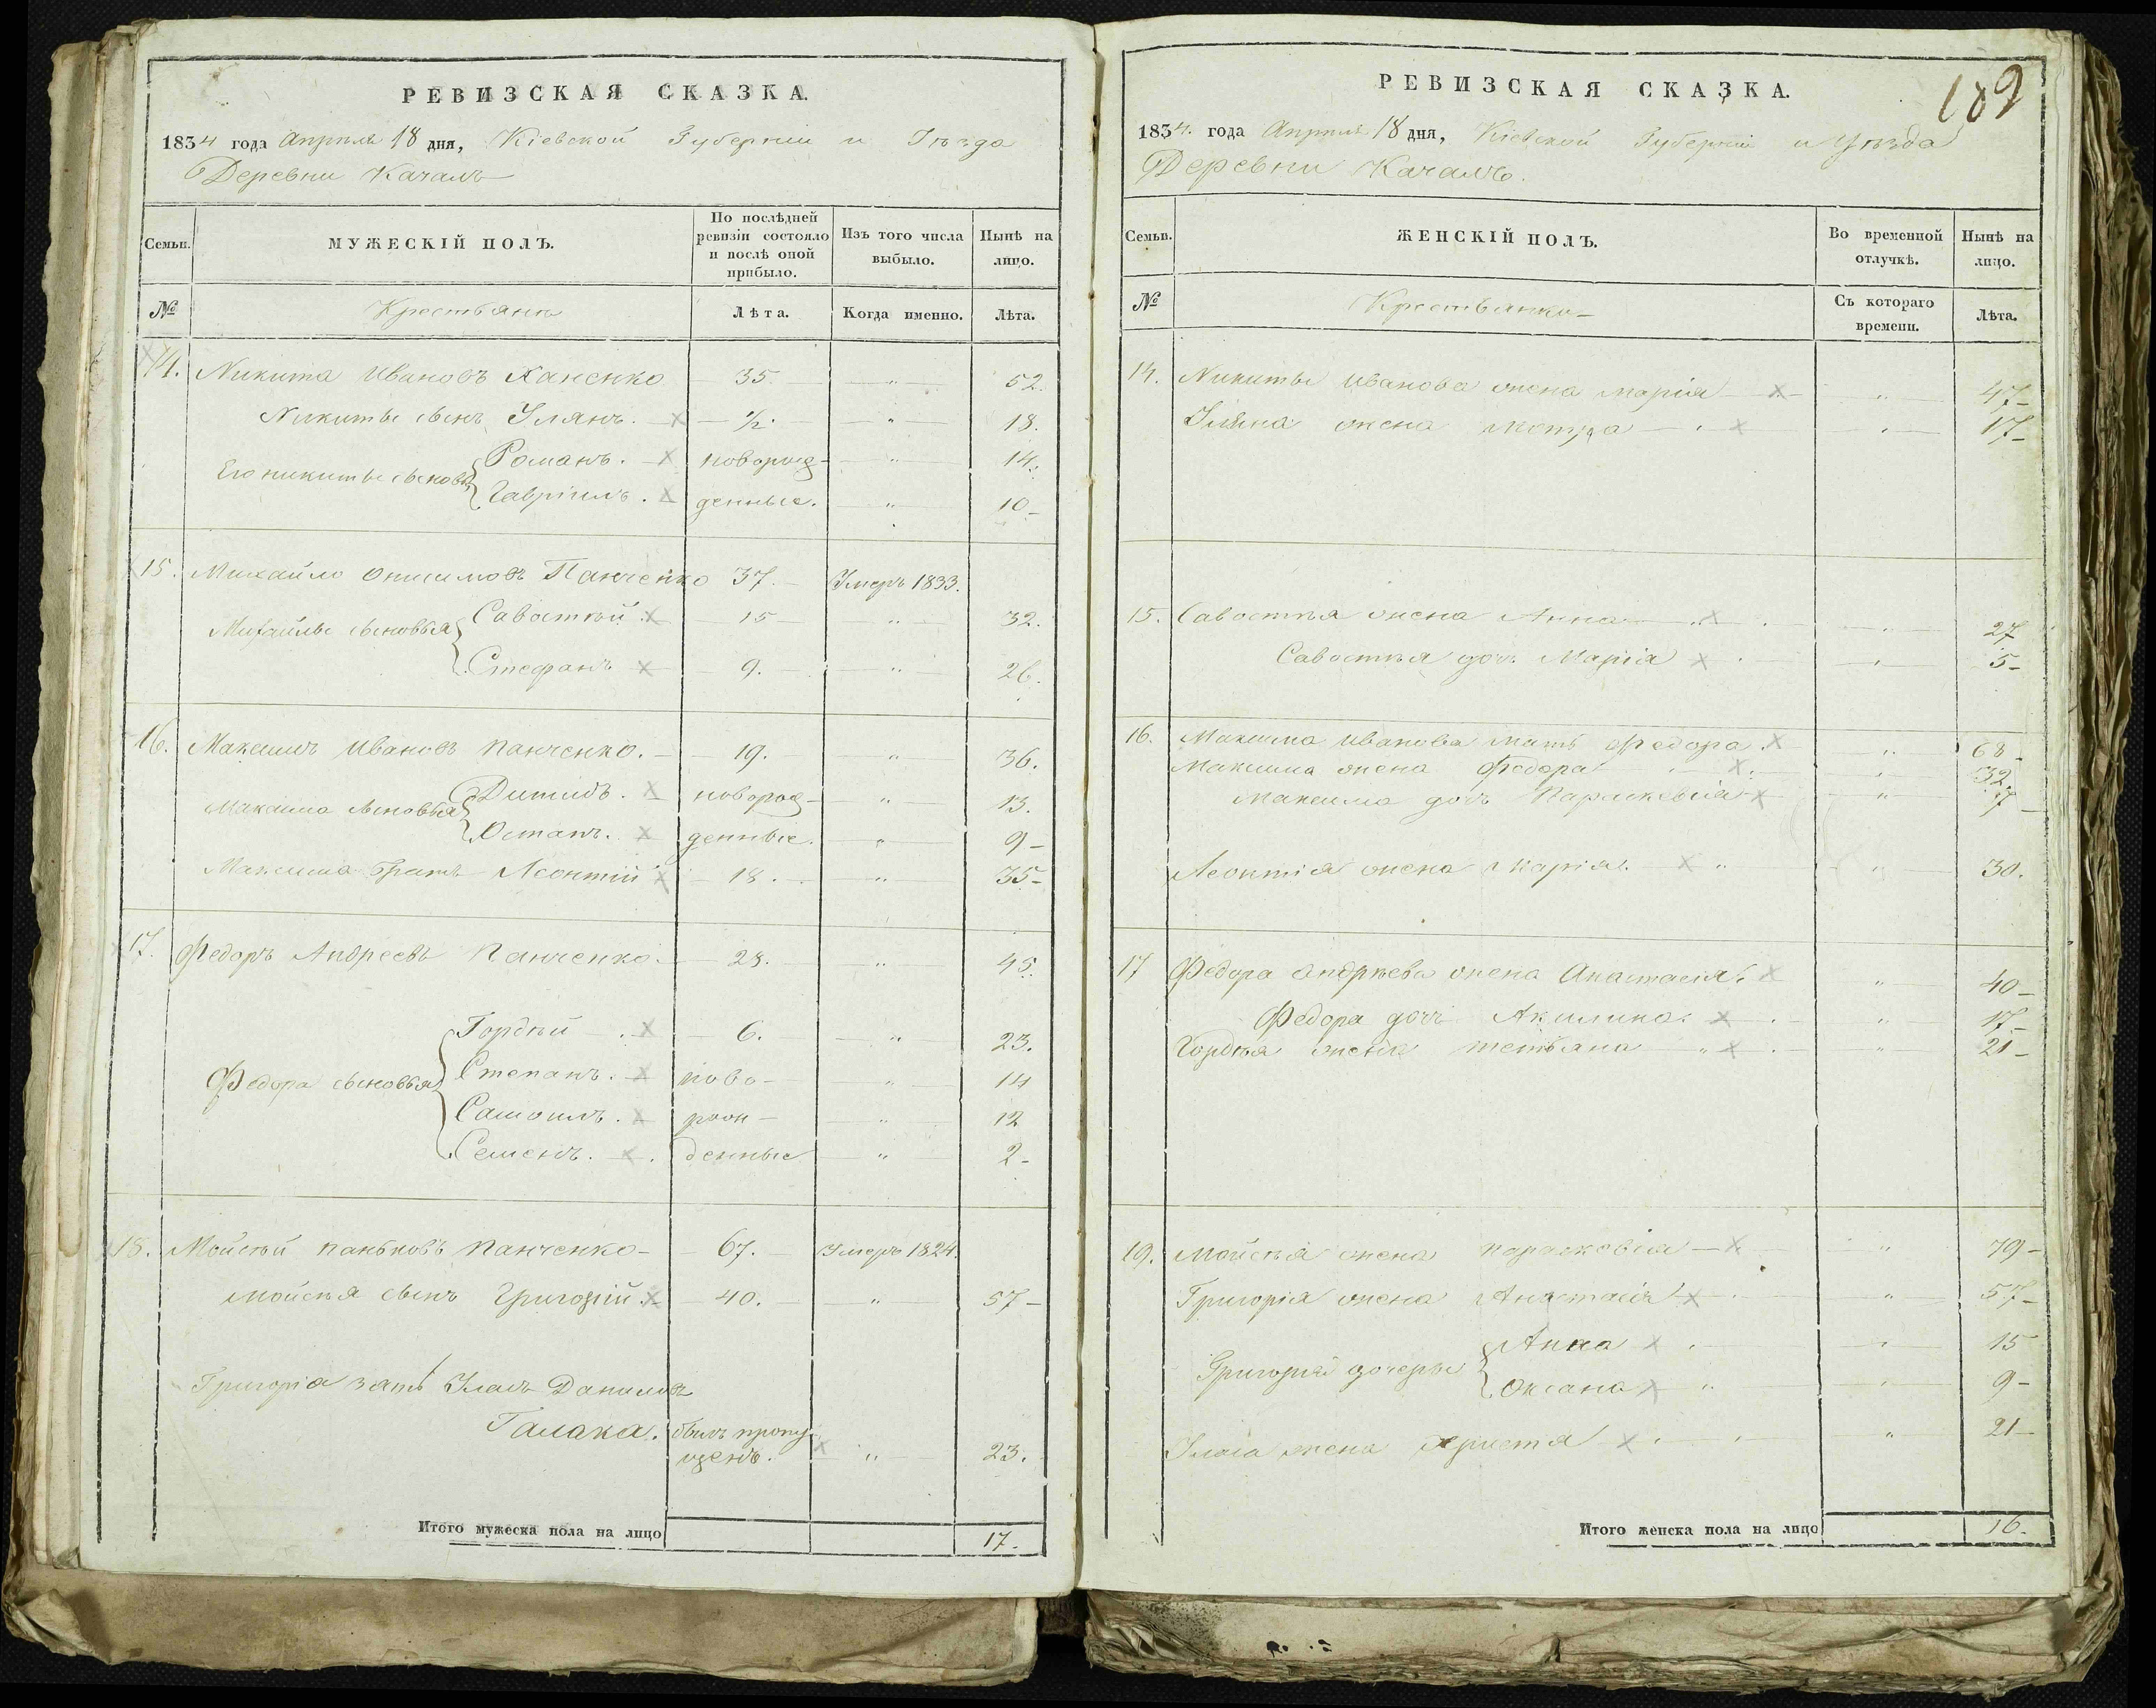 РЕВИЗСКАЯ СКАЗКА.
1834 года Апреля 18 дня, Кіевской Губерніи и Уѣзда
Деревни Качаль
Семьи.
МУЖЕСКІЙ ПОЛЪ.
По послѣдней ревизіи состояло и послѣ оной прибыло.
Изъ того числа выбыло.
Нынѣ на лицо.
№
Крестьяне
Лѣта.
Когда именно.
Лѣта.
14. Никита Ивановъ Ханенко 35. " 52.
Никиты сынъ Улянъ. 1/2. " 18.
Его никиты сыновья Романъ. новорож- " 14.
Гавріилъ. денные. " 10
15. Михайло Онисимовъ Панченко 37. Умеръ 1833.
Михайлы сыновья Савостѣй 15 " 32.
Стефанъ 9. " 26.
16. Максимъ Ивановъ Панченко. 19. " 36.
Максима сыновья Димидъ. новорож- " 13.
Остапъ. денные. " 9
Максима братъ Леонтій 18. " 35
17. Федоръ Андреевъ Панченко. 28. " 45.
Гордѣй 6. " 23.
Федора сыновья Степанъ. ново- " 14
Самоилъ. рож- " 12
Семенъ. денные " 2
18. Мойсѣй паньковъ Панченко 67. Умеръ 1824.
Мойсѣя сынъ Григорій. 40. " 57
Григорія зять Улась Даниловъ
Галака. былъ пропу-
щенъ. " 23.
Итого мужеска пола на лицо 17.
РЕВИЗСКАЯ СКАЗКА.
189
1834. года Апреля 18 дня, Кіевской Губерніи и Уѣзда
Деревни Качалъ.
Семьи.
ЖЕНСКІЙ ПОЛЪ.
Во временной отлучкѣ.
Нынѣ на лицо.
№
Крестьянки
Съ котораго времени.
Лѣта.
14. Никиты Иванова жена Марія " 47
Уляна жена Мотра " 17
15. Савостѣя жена Анна " 27
Савостѣя дочь Марія " 5
16. Максима Иванова мать Федора " 68
Максима жена Федора " 32
Максима дочь Параскевія " 7
Леонтія жена Марія. " 30.
17 Федора Андрѣева жена Анастасія. " 40
Федора дочь Акилина. " 17
Гордѣя жена тетьяна " 21
19. Мойсѣя жена параскевія " 79
Григорія жена Анастасія " 57
Григорія дочеры Анна " 15
Оксана " 9
Уласа жена Христя " 21
Итого женска пола на лицо 16.